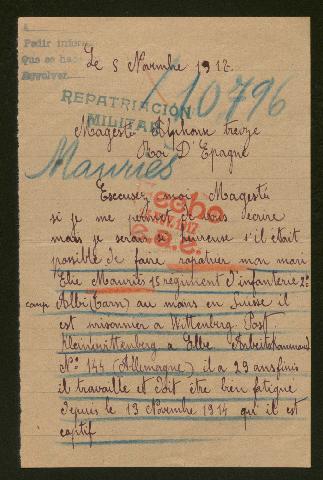 Pedir infor
Que se ha
Devolver
Le 5 Novembre 1917.
/10796
REPATRIACIÓN
MILITAR
Magesté Alphonse treize
Roi D'Epagne
Mauriès
Escusez moi Magesté
si je me permet de vous écrire
mais je serais si heureuse s'il était
possible de faire rapatrier mon mari
Elie Mauriès 15 regiment d'infanterie 2e
camp Albi (Tarn) au moins en Suisse il
est prisonnier a Wittenberg Post
Kleinwittenberg a Elbe (Arbeitskommando
No 144 (Allemagne) il a 29 ans finis
il travaille et doit être bien fatigue
depuis le 13 Novembre 1914 qu'il est
captif